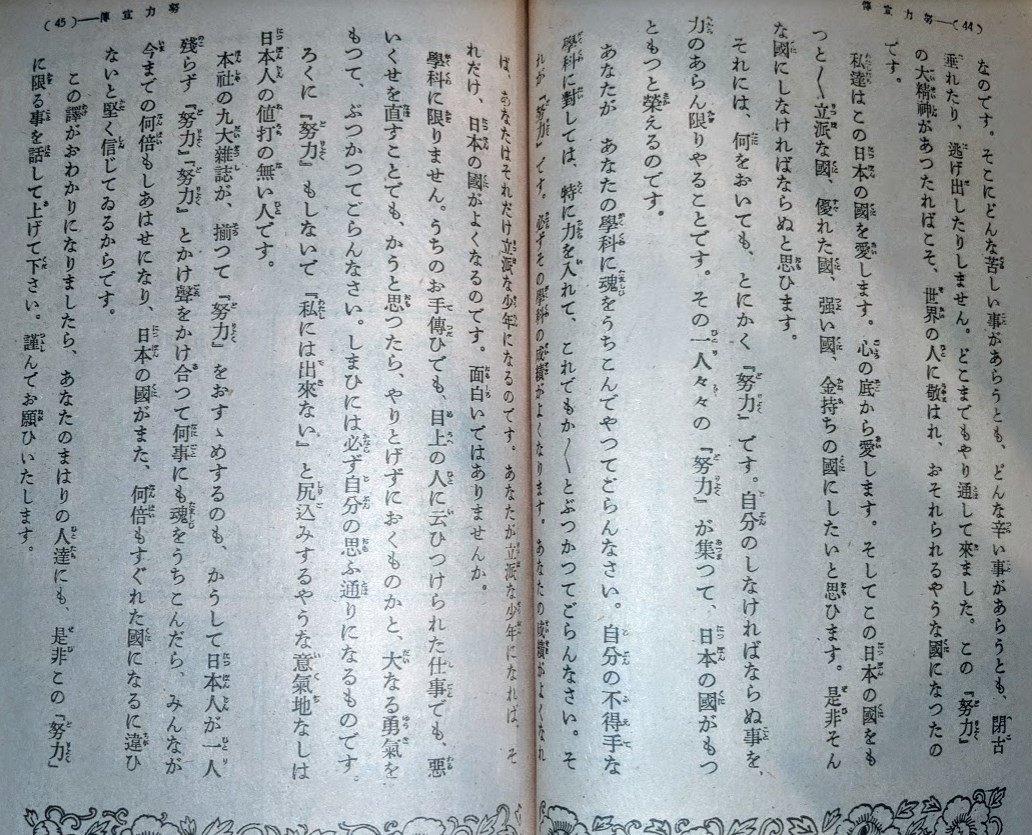 (44)―努力宣傳
なのです。そこにどんな苦しい事があらうとも、どんな辛い事があらうとも、閉古
垂れたり、逃げ出したりしません。どこまでもやり通して來ました。この『努力』
の大精神があつたればこそ、世界の人に敬はれ、おそれられるやうな國になつたの
です。
私達はこの日本の國を愛します。心の底から愛します。そしてこの日本の國をも
つと〳〵立派な國、優れた國、强い國、金持ちの國にしたいと思ひます。是非そん
な國にしなければならぬと思ひます。
それには、何をおいても、とにかく『努力』です。自分のしなければならぬ事を、
力のあらん限りやることです。その一人々々の『努力』が集つて、日本の國がもつ
ともつと榮えるのです。
あなたが　あなたの學科に魂をうちこんでやつてごらんなさい。自分の不得手な
學科に對しては、特に力を入れて、これでもか〳〵とぶつかつてごらんなさい。そ
れが『努力』です。必ずその學科の成績がよくなります。あなたの成績がよくなれ
(45)―努力宣傳
ば、あなたはそれだけ立派な少年になるのです。あなたが立派な少年になれば、そ
れだけ、日本の國がよくなるのです。面白いではありませんか。
學科に限りません。うちのお手傳ひでも、目上の人に云ひつけられた仕事でも、惡
いくせを直すことでも、かうと思つたら、やりとげずにおくものかと、大なる勇氣を
もつて、ぶつかつてごらんなさい。しまひには必ず自分の思ふ通りになるものです。
ろくに『努力』もしないで『私には出來ない』と尻込みするやうな意氣地なしは
日本人の値打の無い人です。
本社の九大雜誌が、揃つて『努力』をおすゝめするのも、かうして日本人が一人
殘らず『努力』『努力』とかけ聲をかけ合つて何事にも魂をうちこんだら、みんなが
今までの何倍もしあはせになり、日本の國がまた、何倍もすぐれた國になるに違ひ
ないと堅く信じてゐるからです。
この譯がおわかりになりましたら、あなたのまはりの人達にも、是非この『努力』
に限る事を話して上げて下さい。謹んでお願ひいたします。